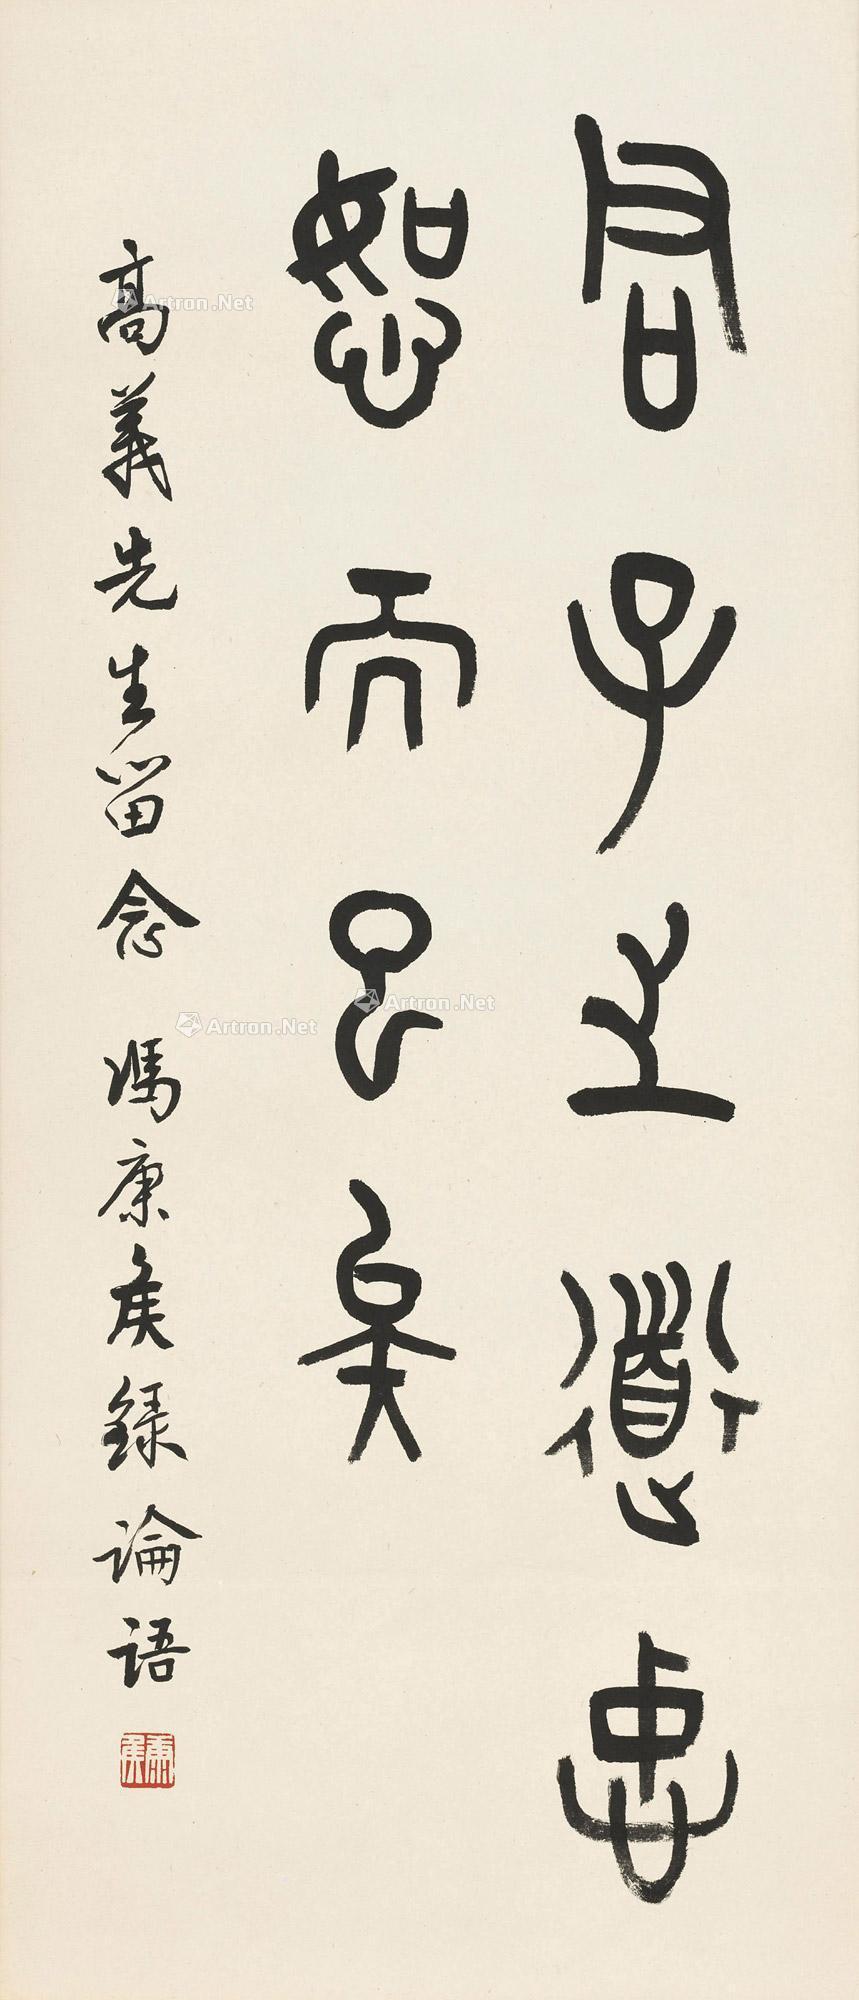 君子之道忠
恕而已矣
高義先生留念 馮康矦録論語
康矦
Artron.Net
Artron.Net
Artron.Net